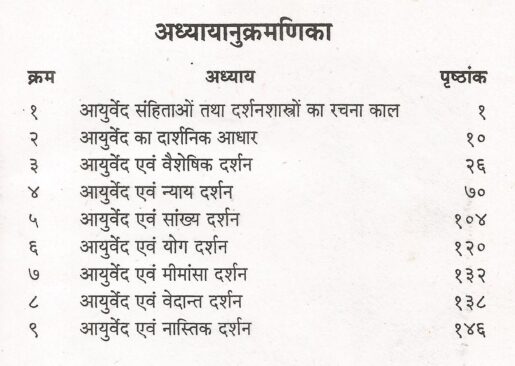 अध्यायानुक्रमणिका
क्रम अध्याय पृष्ठांक
१ आयुर्वेद संहिताओं तथा दर्शनशास्त्रों का रचना काल १
२ आयुर्वेद का दार्शनिक आधार १०
३ आयुर्वेद एवं वैशेषिक दर्शन २६
४ आयुर्वेद एवं न्याय दर्शन ७०
५ आयुर्वेद एवं सांख्य दर्शन १०४
६ आयुर्वेद एवं योग दर्शन १२०
७ आयुर्वेद एवं मीमांसा दर्शन १३२
८ आयुर्वेद एवं वेदान्त दर्शन १३८
९ आयुर्वेद एवं नास्तिक दर्शन १४६